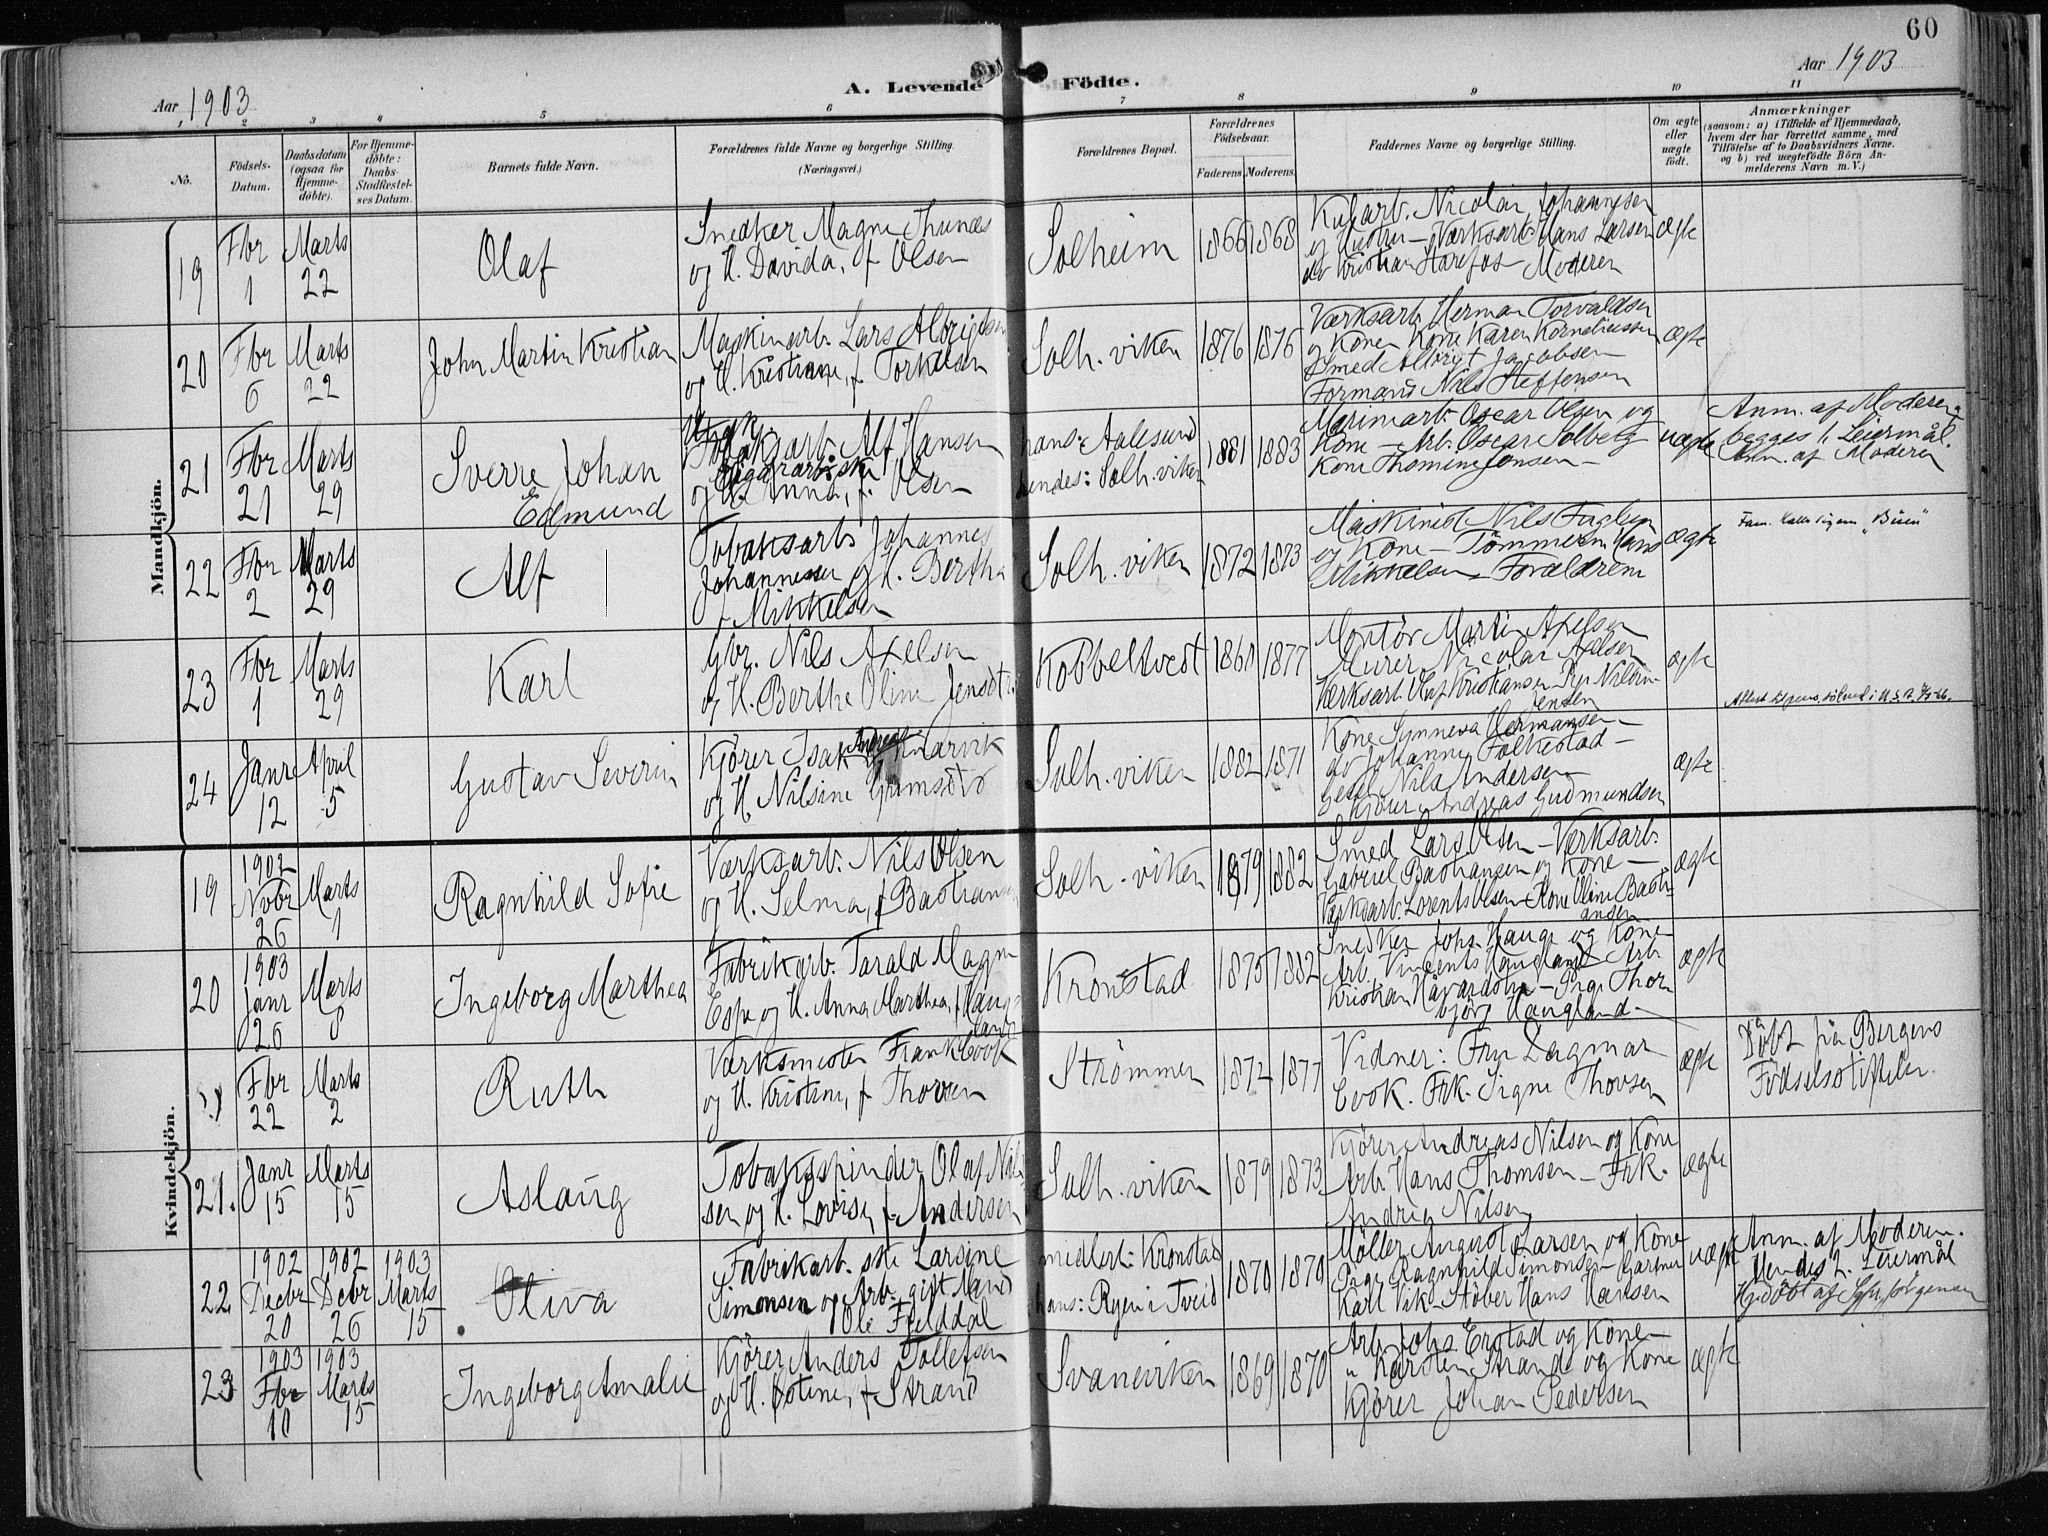 60
Aar 1903
A. Levende Födte.
Aar 1903
1 2 3 4 5 6 7 8 9 10 11
No.
Födsels-
Datum.
Daabsdatum
(ogsaa for
Hjemme-
döbte).
For Hjemme-
döbte:
Daabs-
Stadfæstel-
ses Datum.
Barnets fulde Navn.
Forældrenes fulde Navne og borgerlige Stilling.
(Næringsvei.)
Forældrenes Bopæl.
Forældrenes
Födselsaar.
Faderens. Moderens.
Faddernes Navne og borgerlige Stilling.
Om ægte
eller
uægte
födt.
Anmærkninger
(saasom: a) i Tilfælde af Hjemmedaab,
hvem der har forrettet samme, med
Tilföielse af to Daabsvidners Navne.
og b) ved uægtefödte Börn An-
melderens Navn m. V.)
Mandkjön.
19
Fbr
1
Marts
22
Olaf
Snedker Magne Thunes
og H. Davida, f. Olsen
Solheim
1866 1868
Nicolai Johannesen
og Hustru – Værksarb. Hans Larsen
Kristian Harefos – Moderen
ægte
20
Fbr
6
Marts
22
John Martin Kristian
Maskinarb. Lars Albrigtsen
og H. Kristiane, f. Torkelsen
Solh. viken
1876 1876
Værksarb. Herman Torvaldsen
og Kone Kone Karen Korneliussen
Smed Albrigt Jacobsen
Formand Nils Steffensen
ægte
21
Fbr
21
Marts
29
Sverre Johan
Edmund
Alf Hansen
og Anna, f. Olsen
hans: Aalesund
hendes: Solh. viken
1881 1883
Oscar Olsen og
Kone – Arb. Oscar Solberg –
Kone Thomine Jensen –
uægte
Anm. af Moderen
begges 1. Leiermål.
Anm. af Moderen
22
Fbr
2
Marts
29
Alf
Tobaksarb. Johannes
Johannessen og H. Bertha
f. Mikkelsen
Solh. viken
1872 1873
Maskinist Nils Fuglum
og Kone – Tömmerm. Hans
Mikkelsen – Forældrene
ægte
Fam. kaller sigem "Buen"
23
Fbr
1
Marts
29
Karl
Gbr. Nils Axelsen
og H. Berthe Oline Jensdtr.
Kobbeltvedt
1860 1877
Montör Martin Axelsen
Murer Nicolai Axelsen
Værksarb. Olaf Kristiansen
Jensen
ægte
24
Janr
12
April
5
Gustav Severin
Kjörer Isak Andreas
og H. Nilsine Grimstvö
Solh. viken
1882 1871
Kone Synneva Hermansen –
Johanne Folkestad –
Nils Andersen
Kjörer Andreas Gudmundsen
ægte
Kvindekjön.
19
1902
Nvbr
26
Marts
1
Ragnhild Sofie
Værksarb. Nils Olsen
og H. Selma, f. Bastiansen
Solh. viken
1879 1882
Smed Lars Olsen – Værksarb.
Gabriel Bastiansen og Kone –
Værksarb. Lorents Olsen – Kone Oline Basti-
ansen
ægte
20
1903
Janr
26
Marts
8
Ingeborg Marthea
Fabrikarb. Tarald Magn
Espe og H. Anna Marthea, f. Haug-
land
Kronstad
1875 1882
Snedker Johs. Hauge og Kone
Arb. Vincents Haugland – Arb.
Kristian Håvardstun – Pige Thor-
björg Haugland –
ægte
Fbr
22
Marts
2
Ruth
Værksmester Frank Cook
og H. Kristine, f. Thorsen
Strömmen
1872 1877
Vidner: Fru Dagmar
Cook. Frk. Signe Thorsen
ægte
Döbt på Bergens
Födselsstiftelse.
21.
Janr
15
Marts
15
Aslaug
Tobaksspinder Olaf Nil-
sen og H. Lovise, f. Andersen
Solh. viken
1879 1873
Kjörer Andreas Nilsen og Kone
Arb. Hans Thomsen – Frk.
Andrea Nilsen
ægte
22
1902
Decbr
20
1902
Decbr
26
1903
Marts
15
Oliva
Fabrikarb.ske Larsine
Simonsen og Arb. gift Mand
Ole Fjelddal
midlert: Kronstad
hans: Rygen i Tveid
1870 1870
Möller August Larsen og Kone
Pige Ragnhild Simonsen – Gartner
Karl Vik – Stöber Hans Hansen
uægte
Anm. af Moderen.
Hendes 2. Leiermål
23
1903
Fbr
10
1903
Marts
15
Ingeborg Amalie
Kjörer Anders Tollefsen
og H. Ostine, f. Strand
Svaneviken
1869 1870
Arb. Johs. Erstad og Kone
" Karsten Strand og Kone
Kjörer Johan Pedersen
ægte